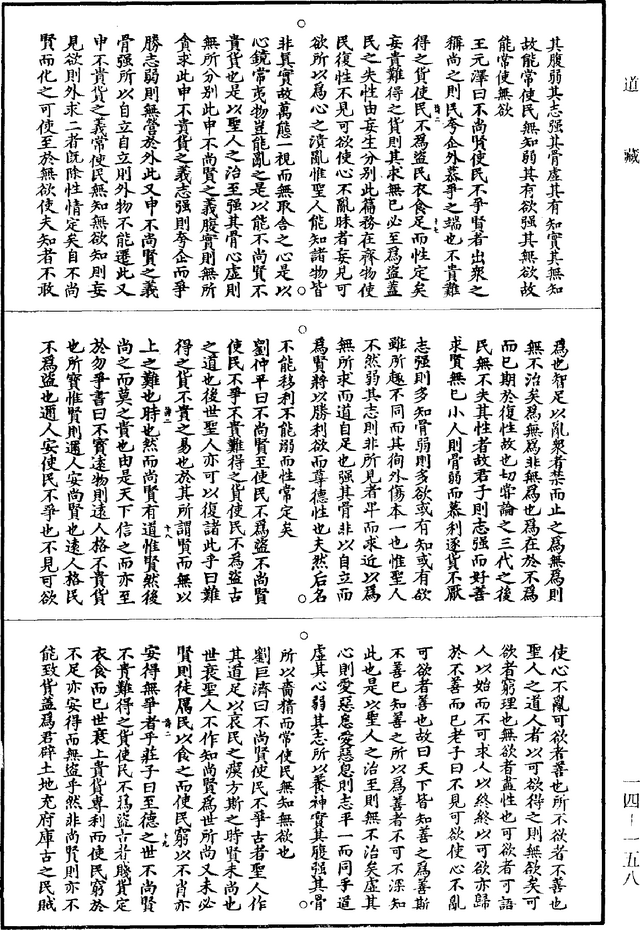 道藏
其腹弱其志强其骨虛其有知實其無知
故能常使民無知弱其有欲强其無欲故
能常使無欲
王元澤曰不尚賢使民不爭賢者出衆之
稱尚之則民夸企外慕爭之端也不貴難
得之貨使民不爲盜民衣食足而性定矣
妄貴難得之貨則其求無已必至爲盜蓋
民之失性由妄生分別此篇務在齊物使
民復性不見可欲使心不亂昧者妄見可
欲所以爲心之潰亂惟聖人能知諸物皆
非眞實故萬態一視而無取舍之心是以
心鏡常夷物豈能亂之是以能不尚賢不
貴貨也是以聖人之治至强其骨心虛則
無所分別此申不尚賢之義腹實則無所
貪求此申不貴貨之義志强則夸企而爭
勝志弱則無營於外此又申不尚賢之義
骨强所以自立自立則外物不能遷此又
申不貴貨之義常使民無知無欲知則妄
見欲則外求二者旣除性情定矣自不尚
賢而化之可使至於無欲使夫知者不敢
爲也智足以亂衆者禁而止之爲無爲則
無不治矣爲無爲非無爲也爲在於不爲
而已期於復性故也切嘗論之三代之後
民無不失其性者故君子則志强而好善
求賢無已小人則骨弱而慕利逐貨不厭
志强則多知骨弱則多欲或有知或有欲
雖所趣不同而其徇外傷本一也惟聖人
不然弱其志則非所見者卑而求近以爲
無所求而道自足也强其骨非以自立而
爲賢將以勝利欲而尊德性也夫然后名
不能移利不能溺而性常定矣
劉仲平曰不尚賢至使民不爲盜不尚賢
使民不爭不貴難得之貨使民不爲盜古
之道也後世聖人亦可以復諸此乎曰難
得之貨不貴之易也於其所謂賢而無以
上之難也時也然而尚賢有道惟賢然後
尚之而莫之貴也由是天下信之而亦至
於勿爭書曰不寶遠物則遠人格不貴貨
也所寶惟賢則邇人安尚賢也遠人格民
不爲盜也邇人安使民不爭也不見可欲
使心不亂可欲者善也所不欲者不善也
聖人之道人者以可欲得之則無欲矣可
欲者窮理也無欲者盡性也可欲者可語
人以始而不可求人以終終以可欲亦歸
於不善而已老子曰不見可欲使心不亂
可欲者善也故曰天下皆知善之爲善斯
不善已知善之所以爲善者不可不深知
此也是以聖人之治至則無不治矣虛其
心則愛惡息愛惡息則志平一而同乎道
虛其心弱其志所以養神實其腹强其骨
所以嗇精而常使民無知無欲也
劉巨濟曰不尚賢使民不爭古者聖人作
其道足以哀民之瘼方斯之時賢未尚也
世衰聖人不作知尚賢爲世所尚又未必
賢則徒厲民以食之而使民窮以不肖亦
安得無爭者乎莊子曰至德之世不尚賢
不貴難得之貨使民不爲盜古者賤貨定
衣食而已世衰上貴貨專利而使民窮於
不足亦安得而無盜乎然非尚賢則亦不
能致貨蓋爲君辟土地充府庫古之民賊
一四—一五八